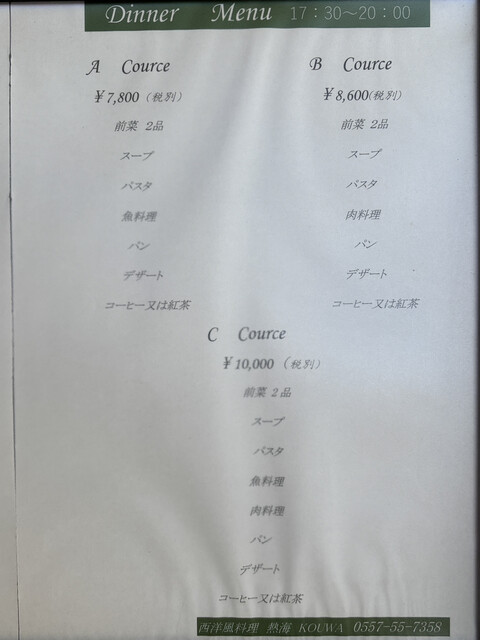 Dinner Menu 17：30～20：00
A Cource
￥7,800（税別）
前菜 2品
スープ
パスタ
魚料理
パン
デザート
コーヒー又は紅茶
B Cource
￥8,600(税別)
前菜 2品
スープ
パスタ
肉料理
パン
デザート
コーヒー又は紅茶
C Cource
￥10,000（税別）
前菜 2品
スープ
パスタ
魚料理
肉料理
パン
デザート
コーヒー又は紅茶
西洋風料理 熱海 KOUWA 0557-55-7358